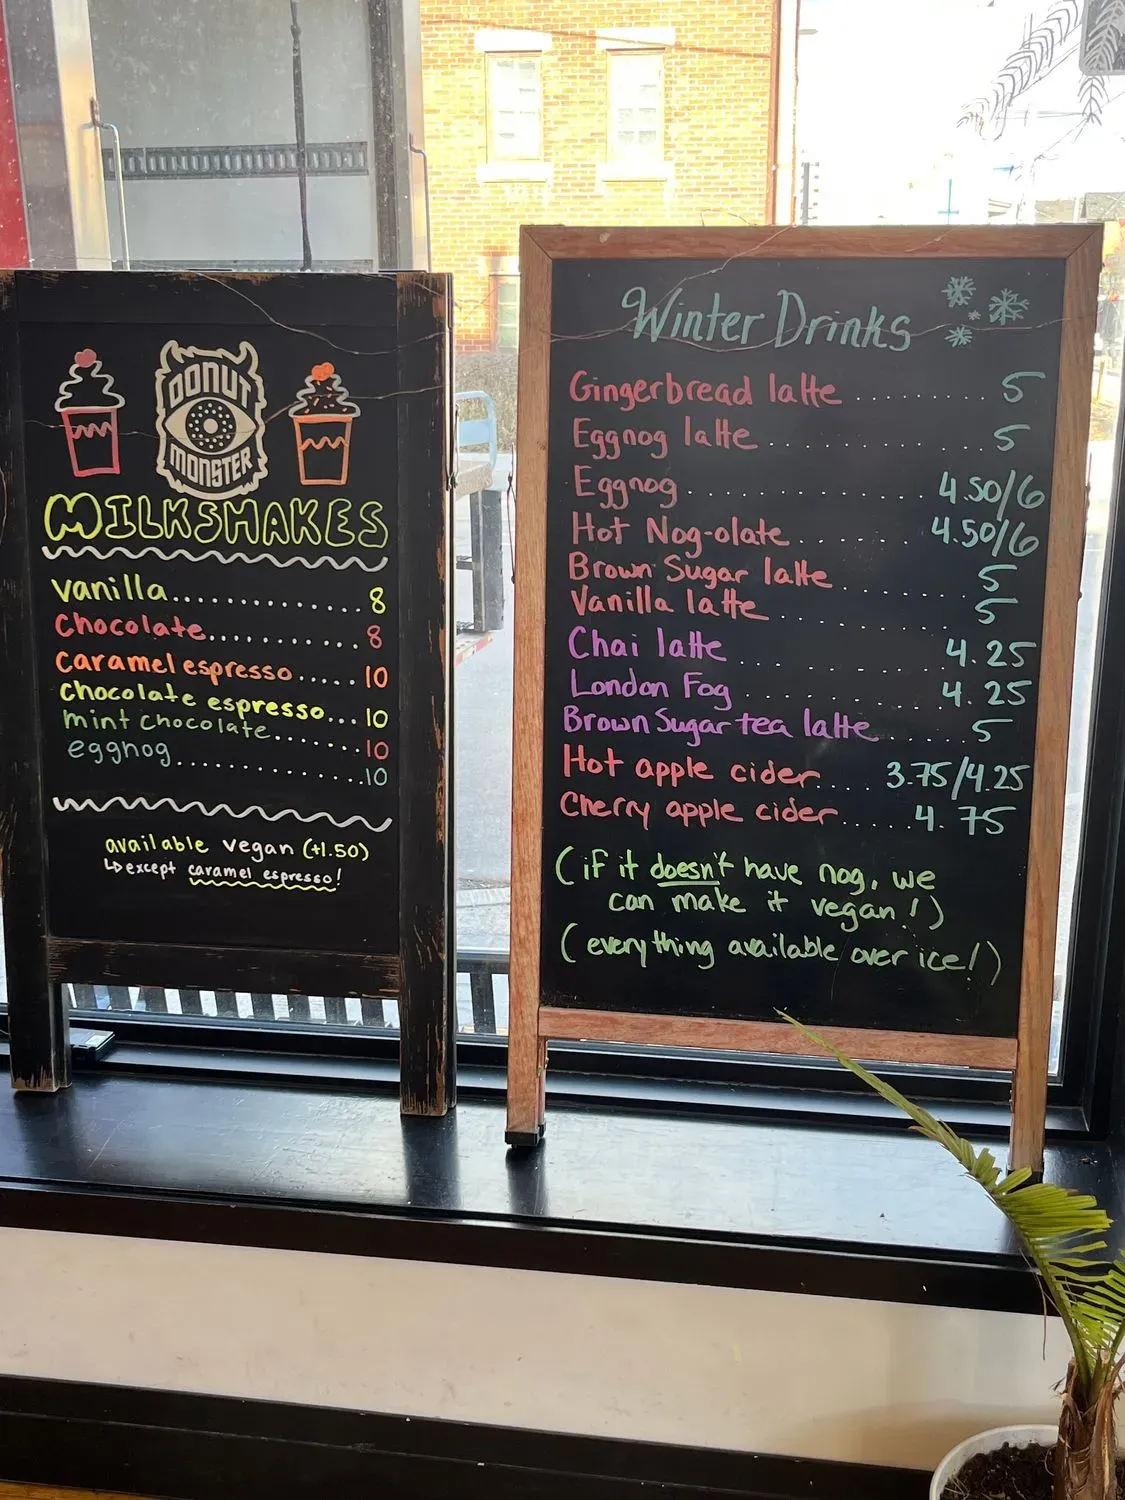 DONUT
MONSTER
MILKSHAKES
vanilla.............. 8
chocolate........... 8
caramel espresso..... 10
chocolate espresso... 10
mint chocolate....... 10
eggnog............... 10
available vegan (+1.50)
↳ except caramel espresso!
Winter Drinks
Gingerbread latte .......... 5
Eggnog latte ............ 5
Eggnog .............. 4.50/6
Hot Nog-olate ........ 4.50/6
Brown Sugar latte ........ 5
Vanilla latte ........... 5
Chai latte ........... 4.25
London Fog ........... 4.25
Brown Sugar tea latte ..... 5
Hot apple cider.... 3.75/4.25
Cherry apple cider...... 4.75
(if it doesn't have nog, we
can make it vegan!)
(everything available over ice!)